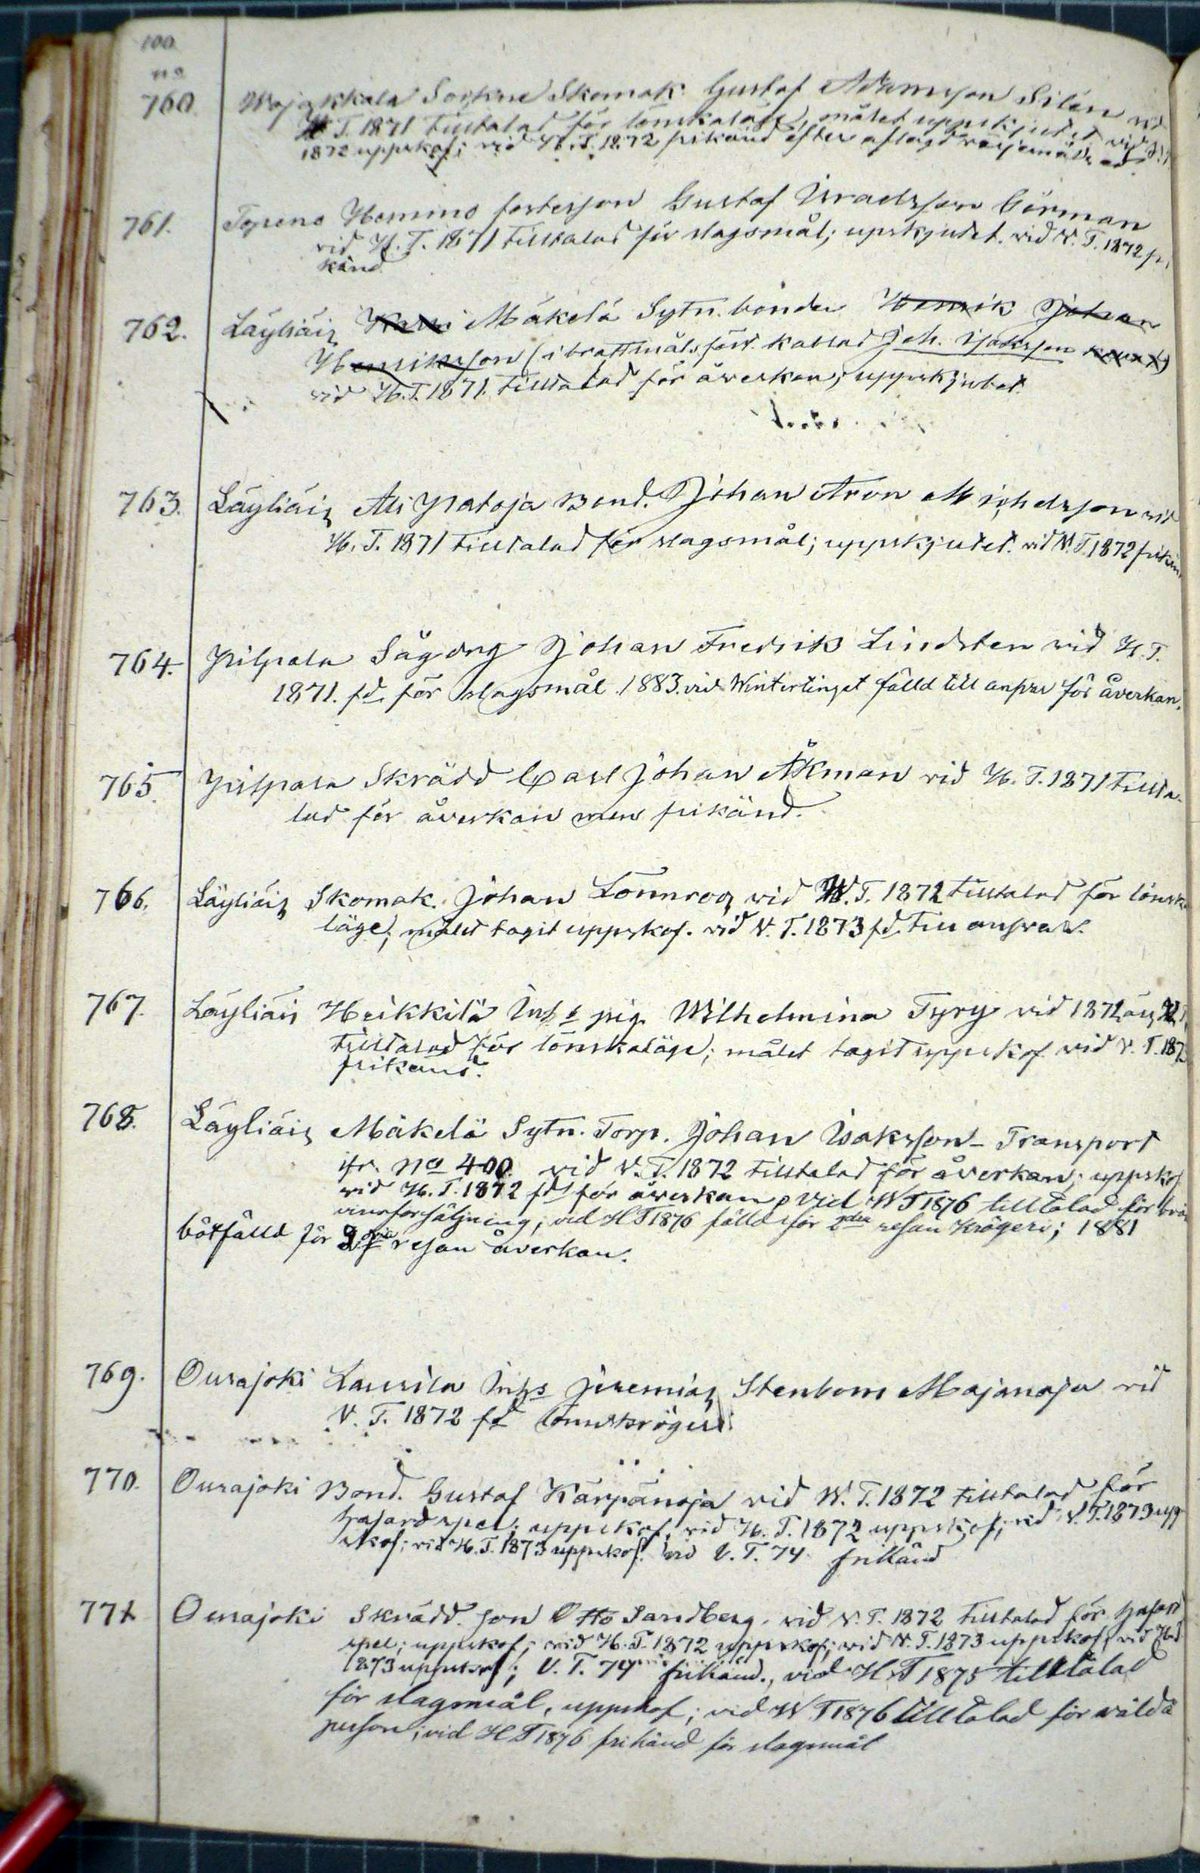 100.
no
760. Wojakkala Sockne Skomak. Gustaf Adamsson Silén vid
H. T. 1871 tilltalad för lönskaläge, målet uppskjutet vid
1872 uppskof; vid H. T. 1872 frikänd efter aflagd värjemåls ed.
761. Topeno Hemmo fosterson Gustaf Israelsson Görman
vid H. T. 1871 tilltalad för slagsmål; upskjutet. vid V. T. 1872 fri
känd
762. Läyliäis Mäkelä Sytn. bonden Henrik Johan
Henriksson (i brottmålsfört. kallad Joh. Isaksson)
vid H. T. 1871 tilltalad för åverkan; uppskjutet
763. Läyliäis Ali Pätoja Bond. Johan Aron Michelsson vid
H. T. 1871 tilltalad för slagsmål; uppskjutet. vid V. T. 1872 frikän
764. Pilpala Sågdrg Johan Fredrik Lindsten vid H. T.
1871. fd. för slagsmål. 1883. vid Wintertinget fälld till ansvar för åverkan.
765. Pilpala Skrädd Carl Johan Åkman vid H. T. 1871 tillta-
lad för åverkan men frikänd.
766. Läyliäis Skomak. Johan Lönnroos vid W. T. 1872 tilltalad för lönska
läge; målet tagit uppskof. vid V. T. 1873 fd. till ansvar.
767. Läyliäis Heikkilä Inhs pig. Wilhelmina Tyry vid 1872 års
tilltalad för lönskaläge; målet tagit uppskof vid V. T. 187
frikänd.
768. Läyliäis Mäkelä Sytn. Torp. Johan Isaksson – Transport
ifr. No 400. vid V. T. 1872 tilltalad för åverkan; uppskof
vid H. T. 1872 fd för åverkan, vid WT 1876 tilltalad för brän
vinsförsäljning; vid HT 1876 fälld för 2dra resan krögeri; 1881
bötfälld för resan åverkan.
769. Ourajoki Laurila Inhs Jeremias Stenbom Majanoja vid
V. T. 1872 fd lönnkrögeri
770. Ourajoki Bond. Gustaf Kärpänoja vid W. T. 1872 tilltalad för
hasardspel; uppskof, vid H. T. 1872 uppskof; vid V. T. 1873 upp
skof; vid H. T. 1873 uppskof. vid V. T. 74 frikänd
771. Ourajoki Skrädd. son Otto Sandberg. vid V. T. 1872 tilltalad för hasard
spel; uppskof; vid H. T. 1872 uppskof; vid V. T. 1873 uppskof; vid
1873 uppskof; V. T. 74 frikänd., vid HT 1875 tilltalad
för slagsmål, uppskof; vid WT 1876 tilltalad för wålda
person; vid HT 1876 frikänd för slagsmål